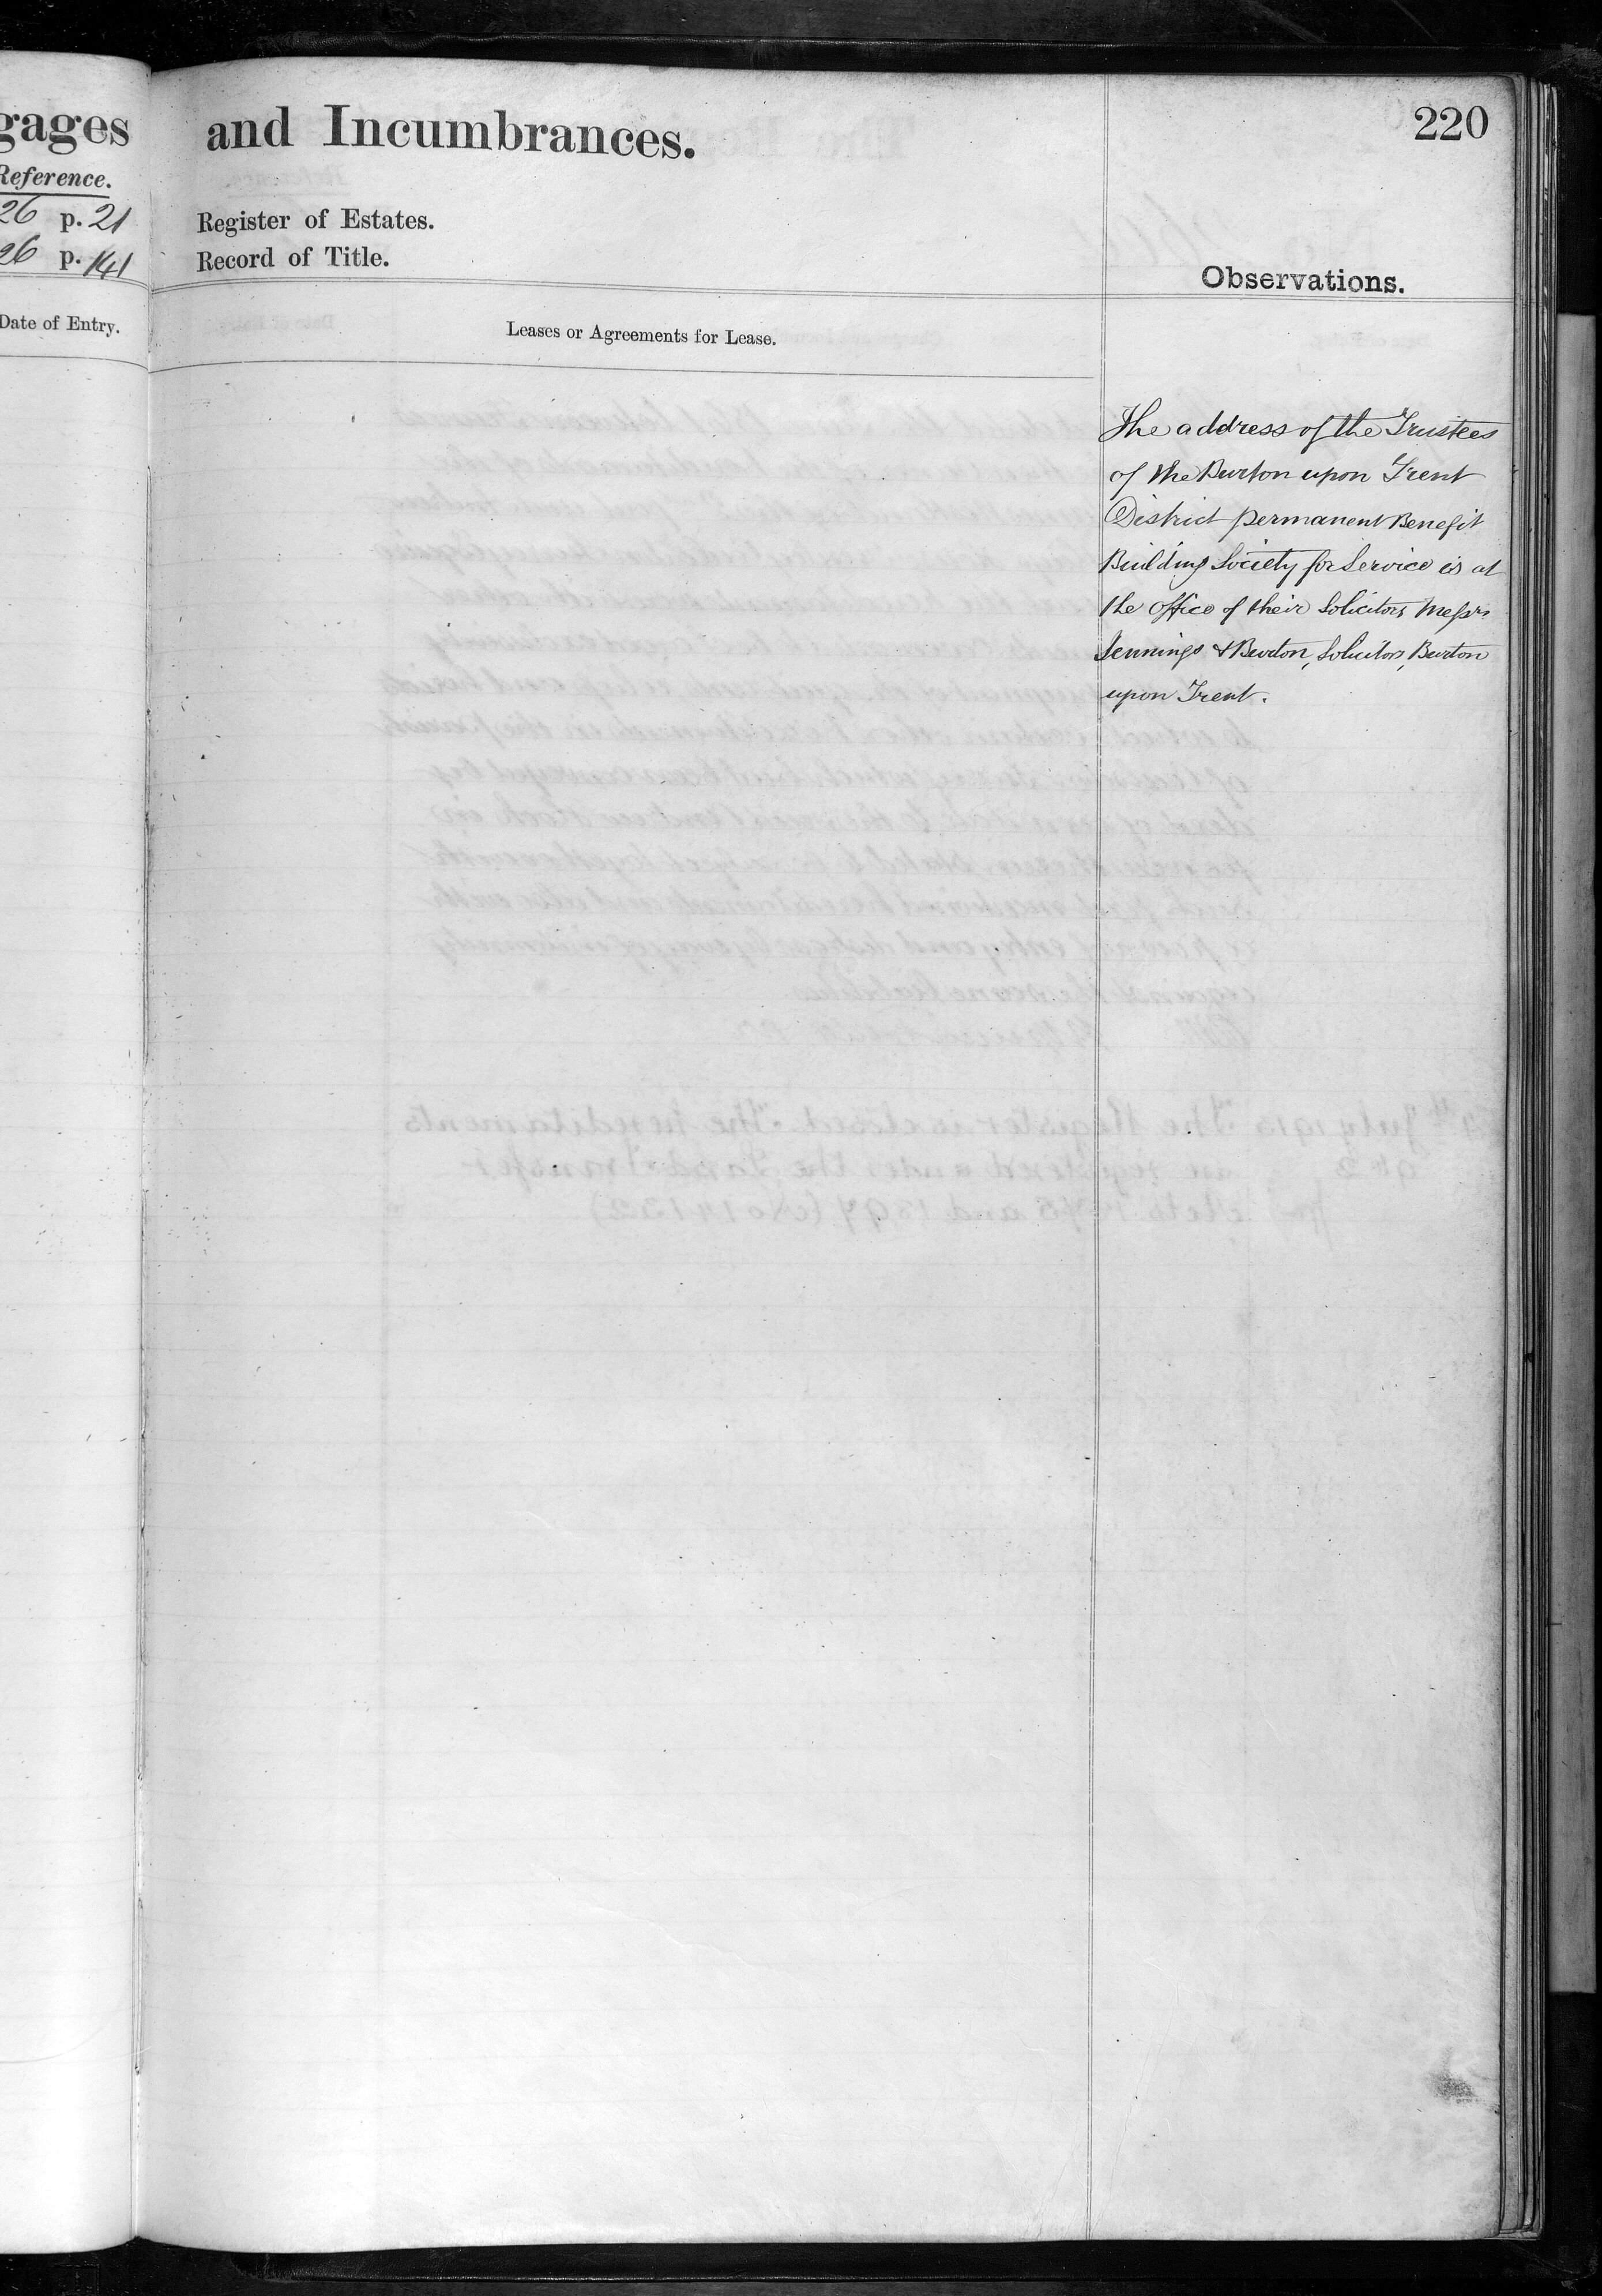 gages
Reference.
26 p. 21
26 p. 141
Date of Entry.
and Incumbrances.
220
Register of Estates.
Record of Title.
Observations.
Leases or Agreements for Lease.
The address of the Trustees
of the Burton upon Trent
District permanent Benefit
Building Society for Service is at
the office of their Solicitors Messrs
Jennings & Burton, Solicitors, Burton
upon Trent.